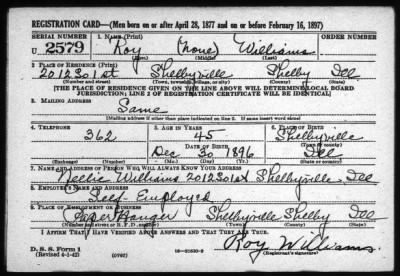 REGISTRATION CARD—(Men born on or after April 28, 1877 and on or before February 16, 1897)
SERIAL NUMBER 1. NAME (Print)
U 2579 Roy (none) Williams
(First) (Middle) (Last)
2. PLACE OF RESIDENCE (Print)
Shelbyville Shelby Ill
(Number and street) (Town, township, village, or city) (County) (State)
[THE PLACE OF RESIDENCE GIVEN ON THE LINE ABOVE WILL DETERMINE LOCAL BOARD
JURISDICTION; LINE 2 OF REGISTRATION CERTIFICATE WILL BE IDENTICAL]
3. MAILING ADDRESS
Same
[Mailing address if other than place indicated on line 2. If same insert word same]
4. TELEPHONE 5. AGE IN YEARS 6. PLACE OF BIRTH
362 45 Shelbyville
DATE OF BIRTH (Town or county)
Dec 30 1896 Ill
(Exchange) (Number) (Mo.) (Day) (Yr.) (State or country)
7. NAME AND ADDRESS OF PERSON WHO WILL ALWAYS KNOW YOUR ADDRESS
Nellie Williams Shelbyville, Ill
8. EMPLOYER'S NAME AND ADDRESS
Self-Employed
9. PLACE OF EMPLOYMENT OR BUSINESS
Paper Hanger Shelbyville Shelby Ill
(Number and street or R. F. D. number) (Town) (County) (State)
I AFFIRM THAT I HAVE VERIFIED ABOVE ANSWERS AND THAT THEY ARE TRUE.
Roy Williams
D. S. S. Form 1
(Revised 4-1-42) (over) (Registrant's signature)